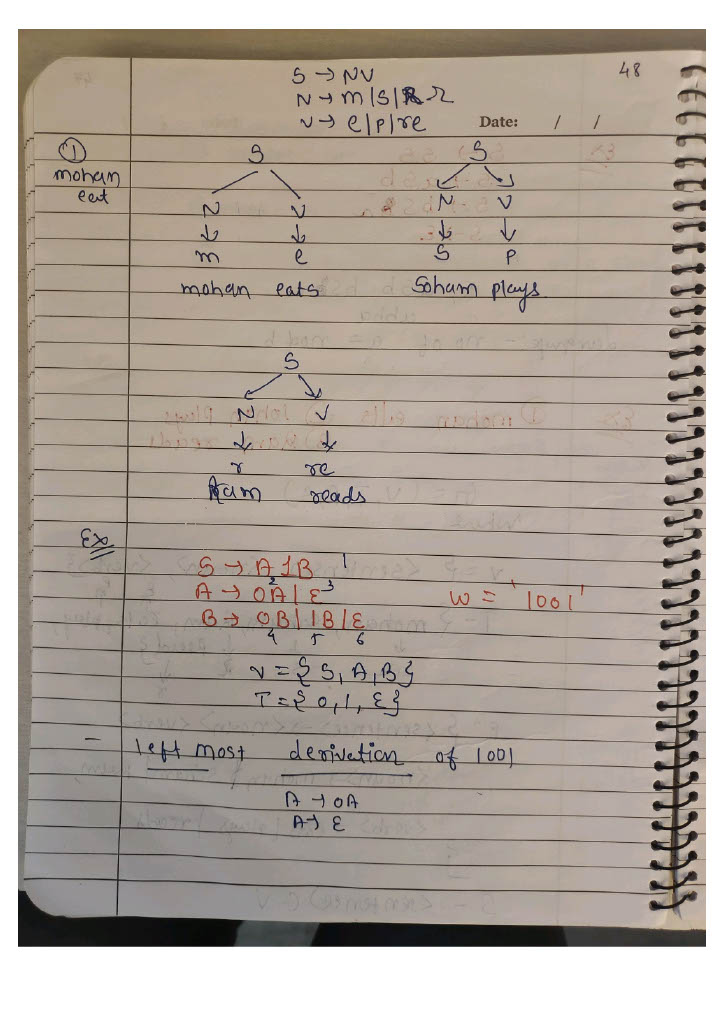 48
S → NV
N → m|S|r
V → e|p|re
Date: / /
① mohan eat
S S
N V N V
↓ ↓ ↓ ↓
m e S p
mohan eats Soham plays.
S
N V
↓ ↓
r re
Ram reads
Ex
S → A1B 1
2 3
A → 0A|ε
B → 0B|1B|ε
4 5 6
w = '1001'
V = {S, A, B}
T = {0, 1, ε}
- left most derivation of 1001
A → 0A
A → ε